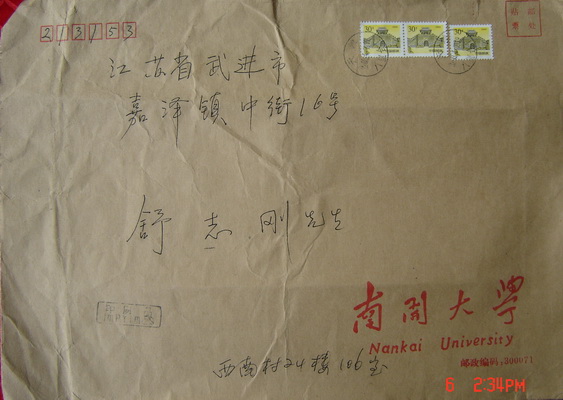 213153
30分 30分 30分
贴邮
票处
江苏省武进市
嘉泽镇中街16号
舒志刚先生
南开大学
Nankai University
邮政编码:300071
西南村24楼106室
6 2:34PM